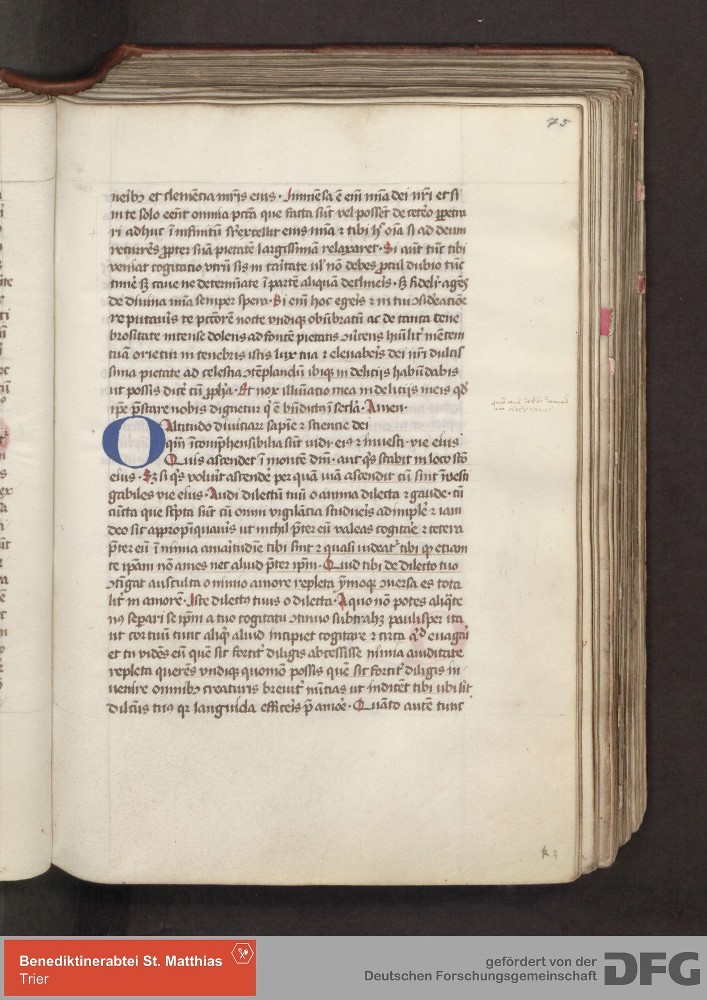 75
neib⁊ et clemẽcia nr̃is eius · Inmẽsa ẽ em̃ mĩa dei nr̃i et si
in te solo eẽnt omnia pctã que facta sũt vel possẽt de cetẽo ꝑpetra
ri adhuc ĩ infinitũ eius mĩa ⁊ tibi oĩa si ad deum
ꝓpter suã pietatẽ largissimã relaxaret · Si aũt tũc tibi
veniat cogitatio vtrũ sis in caritate ul' nõ debes ꝓcul dubio tũc
timẽ sꝫ caue ne determĩate ĩ partẽ aliquã declineis · sꝫ fidelr̃ ageis
de diuina mĩa semper spera · Si em̃ hoc egeis ⁊ in tui ɔsideatiõe
reputauis te pctõrem nocte vndiqꝫ obũbratũ ac de tanta tene
brositate intense dolens ad fontẽ pietatis hũilit̃ mẽtem
tuã orietur in tenebris istis lux tua ⁊ eleuabeis dei nr̃i dulcis
sima pietate ad celestia ɔtẽplandũ ibiqꝫ in deliciis habũdabis
ut possis dicẽ cũ ꝓph̃a · Et nox illuĩatio mea in deliciis meis qd̃
ip̃e p̃stare nobis dignetur q̃ ẽ bñdictꝯ ĩ secl̃a · Amen ·
O Altitudo diuiciaꝝ sapiẽ ⁊ sciencie dei
qm̃ ĩcomp̃hensibilia sũt iudi · eiꝯ ⁊ inuesti · vie eius
Quis ascendet ĩ montẽ dñi · aut q̃s stabit in loco scõ
eius · Sꝫ si q̃s voluit ascendẽ per quã viã ascendit cũ sint ĩuesti
gabiles vie eius · Audi dilectũ tuũ o anima dilecta ⁊ gaude · cũ
cũcta que scp̃ta sũt cũ omni vigilãcia studueis adimplẽ ⁊ iam
deo sic appropĩquauis ut nichil p̃ter eũ valeas cogitãe ⁊ cetera
p̃ter eũ ĩ nimia amaritudĩe tibi sint ⁊ quasi uideat̃ tibi qꝫ etiam
te ip̃am nõ ames nec aliud p̃ter ip̃m · Quid tibi de dilecto tuo
ɔtĩgat ausculta o nimio amore repleta ỹmoqꝫ ɔuersa es tota
lit̃ in amorẽ · Iste dilectꝯ tuus o dilecta · A quo nõ potes aliq̃te
nꝯ separi se ip̃m a tuo cogitatu ɔtinuo subtrahꝫ paulisper ita
ut cor tuũ tunc aliqd̃ aliud incipiet cogitare ⁊ circa euagari
et tu vidẽs eũ quẽ sic fortit̃ diligis abcessisse nimia auiditate
repleta querẽs vndiqꝫ quomõ possis quẽ sic fortit̃ diligis in
uenire omnibꝫ creaturis breuit̃ nũcias ut indicẽt tibi ubi sit
dilcũs tuꝯ qꝛ languida efficeis p̃ amoẽ · Quãto autẽ tunc
Benediktinerabtei St. Matthias
Trier
gefördert von der
Deutschen Forschungsgemeinschaft
DFG